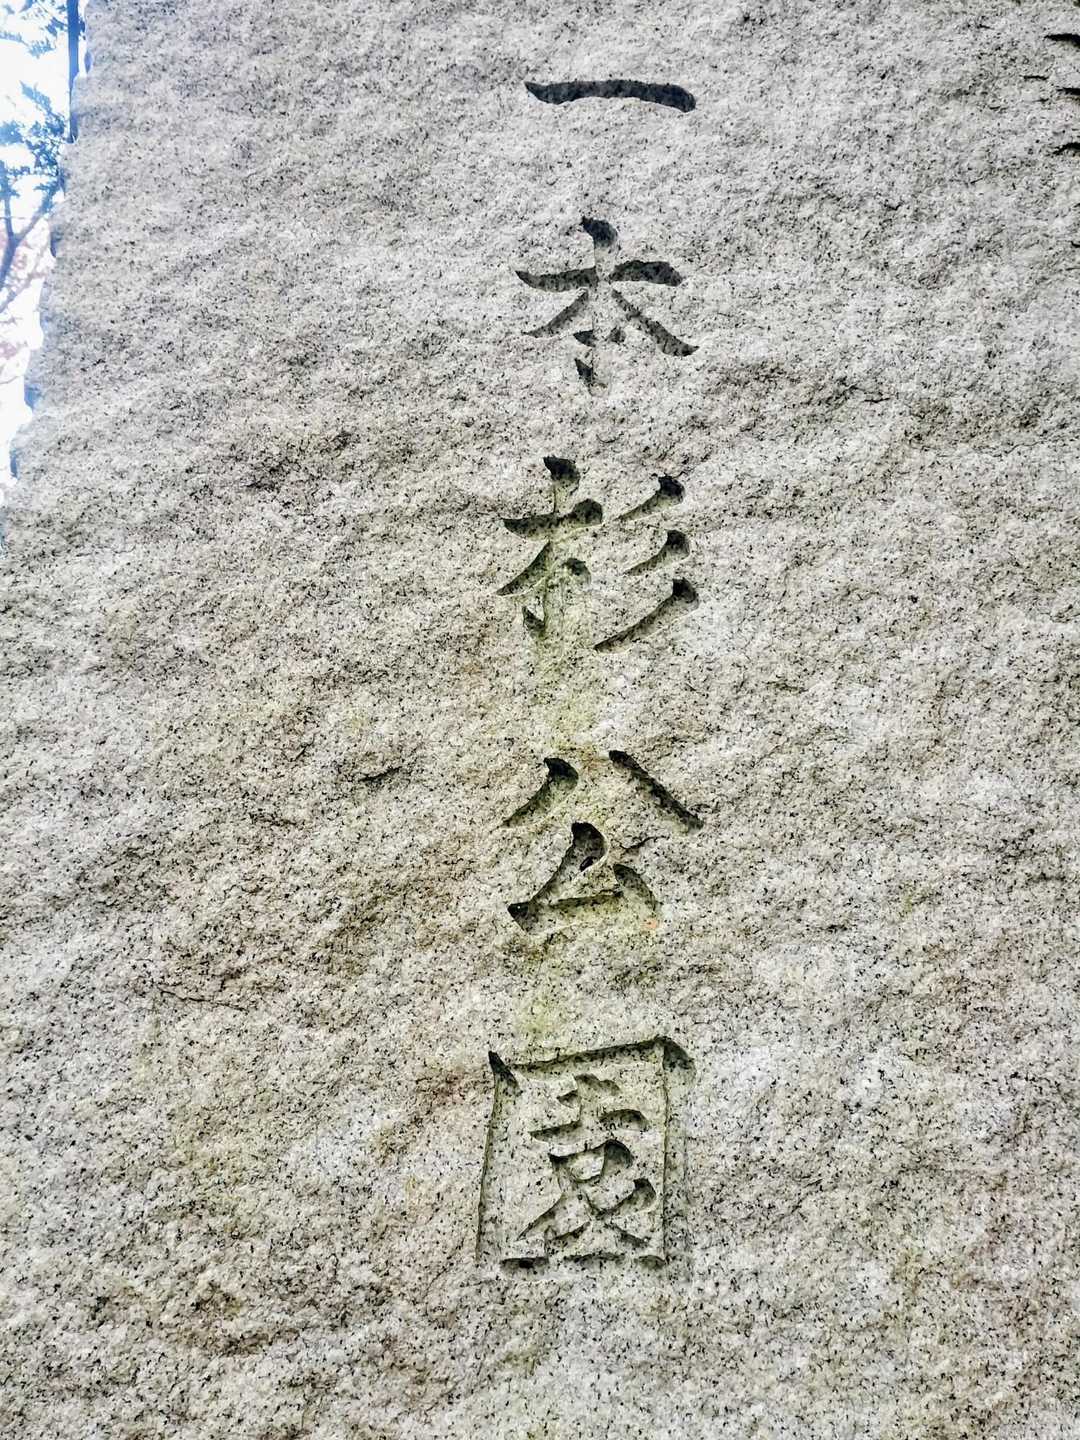 一本杉公園